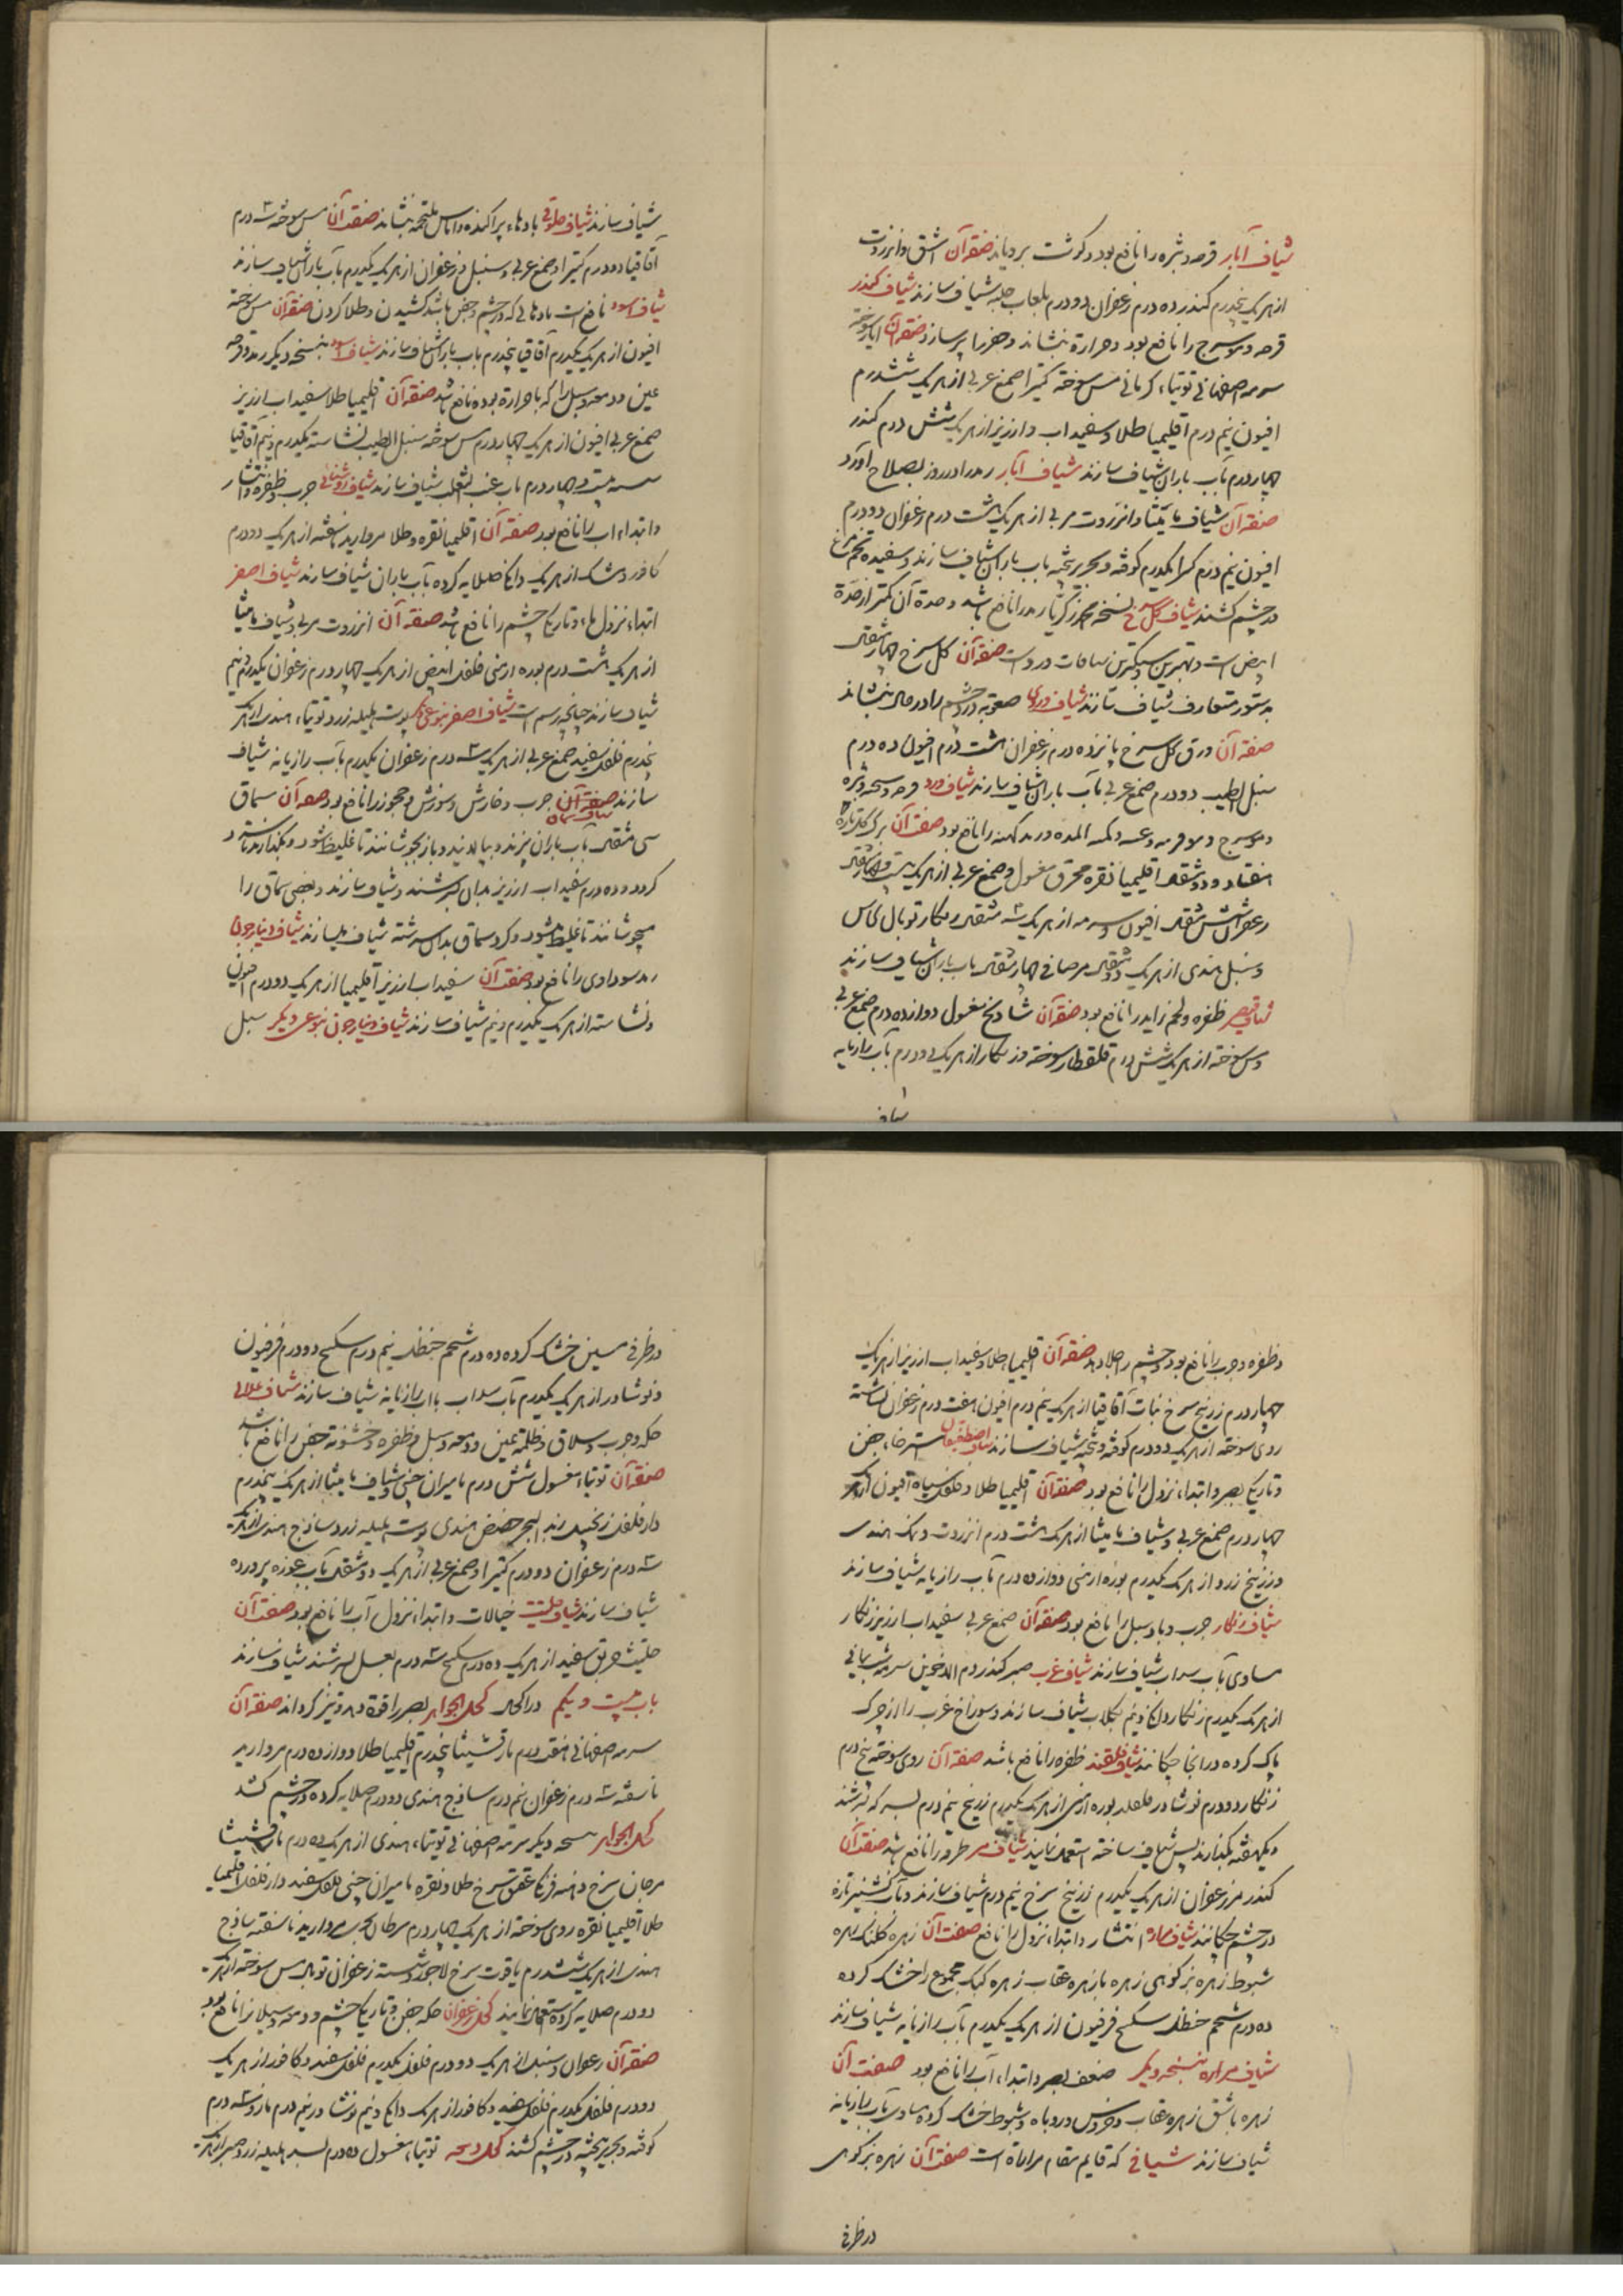 شیاف آبار قرحه و بثره را نافع بود و گوشت برویاند صفة آن اشق و انزروت
از هر یک پنجدرم کندر ده درم زعفران دو درم بلعاب حلبه شیاف سازند شیاف کندر
قرحه و مورسرج را نافع بود و حرارة بنشاند و حفرها پر سازد صفة آن ابار سوخته
سرمه اصفهانی توتیاء کرمانی مس سوخته کتیرا صمغ عربی از هر یک ششدرم
افیون نیم درم اقلیمیا طلا و سفیداب و ارزیز از هر یک شش درم کندر
چهار درم بآب باران شیاف سازند شیاف آبار رمد را در روز بصلاح آورد
صفة آن شیاف مامیثا و انزروت مربی از هر یک هشت درم زعفران دو درم
افیون نیم درم کتیرا یکدرم کوفته و بحریر بیخته بآب باران شیاف سازند و سفیده تخم مرغ
در چشم کشند شیاف کل سرخ نسخه محمد زکریا رمد را نافع باشد و حدة آن کمتر از حدة
ابیض است و بهترین و سبکترین شیافات درد است صفة آن کل سرخ چهار مثقال
بدستور متعارف شیاف سازند شیاف وردی صعوبه درد چشم را در حال بنشاند
صفة آن ورق کل سرخ پانزده درم زعفران هشت درم افیون ده درم
سنبل الطیب دو درم صمغ عربی بآب باران شیاف سازند شیاف ورد قرحه و بثره
و مورسرج و کمنة المده و رمد کهنه را نافع بود صفة آن برک کل تازه
هفتاد و دو مثقال اقلیمیا نقره محرق مغسول و صمغ عربی از هر یک بیست و چهار مثقال
زعفران شش مثقال افیون و سرمه از هر یک ۳ مثقال زنکار توبال نحاس
و سنبل هندی از هر یک دو مثقال مر صافی چهار مثقال بآب باران شیاف سازند
شیاف قیصر ظفره و لحم زاید را نافع بود صفة آن شادنج مغسول دوازده درم صمغ عربی
و مس سوخته از هر یک شش درم قلقطار سوخته و زنکار از هر یک دو درم بآب رازیانه
شیاف
شیاف سازند شیاف حلوقی بادهاء پراکنده و اماس ملتحمه بنشاند صفة آن مس سوخته ۳ درم
آقاقیا دو درم کتیرا و صمغ عربی و سنبل و زعفران از هر یک یکدرم بآب باران شیاف سازند
شیاف اسود نافع است بادهائی که در چشم و جفن باشد کشیدن و طلا کردن صفة آن مس سوخته
افیون از هر یک یکدرم آقاقیا پنجدرم بآب باران شیاف سازند شیاف اسود بنسخه دیگر رمد و قرحه
عین و دمعه و سبل را که با حرارة بوده نافع باشد صفة آن اقلیمیا طلا سفیداب ارزیز
صمغ عربی افیون از هر یک چهار درم مس سوخته سنبل الطیب نشاسته یکدرم و نیم آقاقیا
بیست و چهار درم بآب عنب الثعلب شیاف سازند شیاف روشنائی جرب و ظفره و انتشار
و ابتداء آب را نافع بود صفة آن اقلیمیا نقره و طلا مروارید ناسفته از هر یک دو درم
کافور و مشک از هر یک دانکی صلایه کرده بآب باران شیاف سازند شیاف اصفر
ابتداء نزول ماء و تاریکی چشم را نافع باشد صفة آن انزروت مربی و شیاف مامیثا
از هر یک هشت درم بوره ارمنی فلفل ابیض از هر یک چهار درم زعفران یکدرم و نیم
شیاف سازند چنانچه رسم است شیاف اصفر بنوعی دیگر پوست هلیله زرد توتیاء هندی از هر یک
پنجدرم فلفل سفید صمغ عربی از هر یک ۳ درم زعفران یکدرم بآب رازیانه شیاف
سازند شیاف سماق جرب و خارش و سوزش را نافع بود صفة آن سماق
سی مثقال بآب باران بپزند و بپالایند و باز بجوشانند تا غلیظ شود و بگذارند تا سرد
کردد و ده درم سفیداب ارزیز بدان بسرشند و شیاف سازند و بعضی سماق را
بجوشانند تا غلیظ میشود و کرد سماق بدان سرشته شیاف میسازند شیاف دینارجون
رمد سوداوی را نافع بود صفة آن سفیداب ارزیز اقلیمیا از هر یک دو درم افیون
و نشاسته از هر یک یکدرم و نیم شیاف سازند شیاف دینارجون بنوعی دیگر سبل
و ظفره و جرب را نافع بود و چشم را جلا دهد صفة آن اقلیمیا طلا و سفیداب ارزیز از هر یک
چهار درم زرنیخ سرخ نبات آقاقیا از هر یک نیم درم افیون هفت درم زعفران نشاسته
روی سوخته از هر یک دو درم کوفته و بیخته شیاف سازند شیاف اصطفطیقان استرخاء جفن
و تاریکی بصر و ابتداء نزول را نافع بود صفة آن اقلیمیا طلا و فلفل سیاه افیون از هر یک
چهار درم صمغ عربی و شیاف مامیثا از هر یک هشت درم انزروت و نمک هندی
و زرنیخ زرد از هر یک یکدرم بوره ارمنی دوازده درم بآب رازیانه شیاف سازند
شیاف زنکار جرب و باد سبل را نافع بود صفة آن صمغ عربی سفیداب ارزیز زنکار
مساوی بآب سداب شیاف سازند شیاف غرب صبر کندر دم الاخوین سرمه شب یمانی
از هر یک یکدرم زنکار دانکی و نیم بکلاب شیاف سازند و سوراخ غرب را از چرک
پاک کرده در انجا چکانند شیاف قلقند ظفره را نافع باشد صفة آن روی سوخته پنج درم
زنکار دو درم نوشادر قلقند بوره ارمنی از هر یک یکدرم زرنیخ نیم درم بسرکه بسرشند
و یکهفته بگذارند پس شیاف ساخته استعمال نمایند شیاف مر طرفه را نافع باشد صفة آن
کندر مر زعفران از هر یک یکدرم زرنیخ سرخ نیم درم شیاف سازند و بآب کشنیز تازه
در چشم چکانند شیاف مراره انتشار و ابتداء نزول را نافع صفت آن زهره کلنک زهره
شبوط زهره بز کوهی زهره باز زهره عقاب زهره کبک مجموع را خشک کرده
ده درم شحم حنظل سکبینج فرفیون از هر یک یکدرم بآب رازیانه شیاف سازند
شیاف مراره بنسخه دیگر ضعف بصر و ابتداء آب را نافع بود صفت آن
زهره باشق زهره عقاب و خروس و روباه و شبوط خشک کرده مساوی بآب رازیانه
شیاف سازند شیافی که قایم مقام مراراة است صفت آن زهره بز کوهی
در ظرفی
در ظرفی مسین خشک کرده ده درم شحم حنظل نیم درم سکبینج دو درم فرفیون
و نوشادر از هر یک یکدرم بآب سداب یا آب رازیانه شیاف سازند شیاف غلائی
حکه و جرب و سلاق و ظلمة عین و دمعه و سبل و ظفره و خشونة جفن را نافع باشد
صفة آن توتیاء مغسول شش درم مامیران چینی و شیاف مامیثا از هر یک پنجدرم
دارفلفل زنجبیل زبد البحر حضض هندی پوست هلیله زرد ساذج هندی از هر یک
۳ درم زعفران دو درم کتیرا و صمغ عربی از هر یک دو مثقال بآب غوره پرورده
شیاف سازند شیاف حلتیت خیالات و ابتداء نزول آب را نافع بود صفت آن
حلتیت خربق سفید از هر یک ده درم سکبینج ۳ درم بعسل بسرشند شیاف سازند
باب بیست و یکم در اکحال کحل الجواهر بصر را قوة دهد و تیز کرداند صفة آن
سرمه اصفهانی هفتدرم مارقشیشا پنجدرم اقلیمیا طلا دوازده درم مروارید
ناسفته ۳ درم زعفران نیم درم ساذج هندی دو درم صلایه کرده در چشم کشد
کحل الجواهر نسخه دیگر سرمه اصفهانی توتیاء هندی از هر یک ده درم مارقشیشا
مرجان سرخ دهنه فرنکی عقیق سرخ طلا و نقره مامیران چینی فلفل سفید دارفلفل اقلیمیا
طلا اقلیمیا نقره روی سوخته از هر یک چهار درم سرطان بحری مروارید ناسفته ساذج
هندی از هر یک ششدرم یاقوت سرخ لاجورد شسته زعفران توبال مس سوخته از هر یک
دو درم صلایه کرده استعمال نمایند کحل زعفران حکه جفن و تاریکی چشم و دمعه و سیلان را نافع بود
صفة آن زعفران و سنبل از هر یک دو درم فلفل یکدرم فلفل سفید و کافور از هر یک
دو درم فلفل یکدرم فلفل سفید و کافور از هر یک دانکی و نیم نوشادر نیم درم مازو ۳ درم
کوفته و بحریر بیخته در چشم کشند کحل دمعه توتیاء مغسول ده درم هلیله زرد و صبر از هر یک